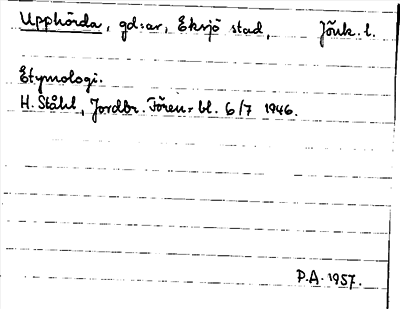 Upphörda, gd:ar, Eksjö stad, Jönk. l.
Etymologi.
H. Ståhl, Jordbr. Fören:s bl. 6/7 1946.
P.A. 1957.